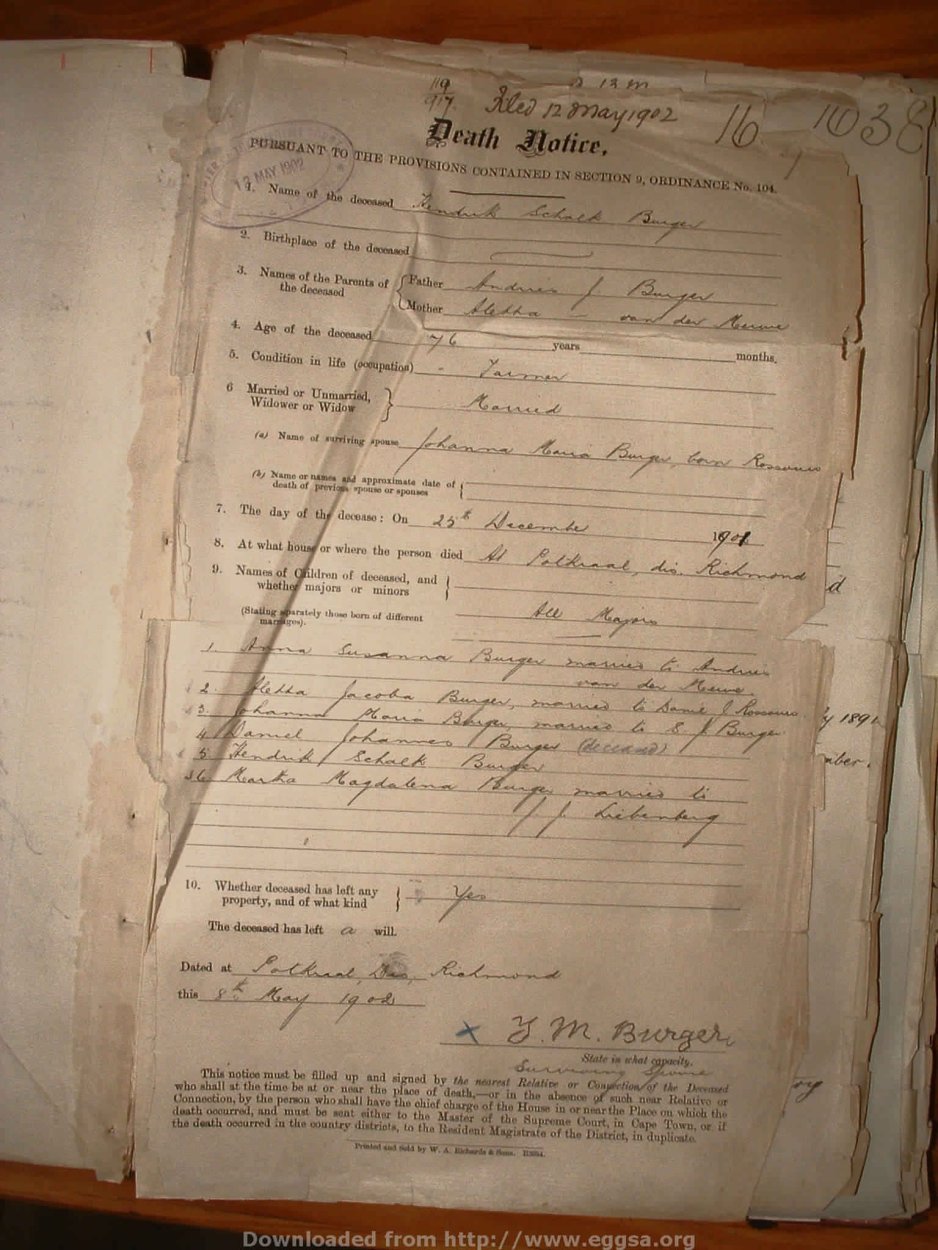 119
917
Filed 12 May 1902
16
1038
Death Notice.
PURSUANT TO THE PROVISIONS CONTAINED IN SECTION 9, ORDINANCE No. 104.
12 MAY 1902
1. Name of the deceased Hendrik Schalk Burger
2. Birthplace of the deceased
3. Names of the Parents of the deceased
Father Andries J Burger
Mother Aletha van der Merwe
4. Age of the deceased 76 years months.
5. Condition in life (occupation) - Farmer
6 Married or Unmarried, Widower or Widow
Married
(a) Name of surviving spouse Johanna Maria Burger, born Rossouw
(b) Name or names and approximate date of
death of previous spouse or spouses
7. The day of the decease: On 25th December 1901
8. At what house or where the person died At Potkraal, dis. Richmond
9. Names of Children of deceased, and
whether majors or minors
(Stating separately those born of different
marriages).
All Majors
1. Anna Susanna Burger married to Andries
van der Merwe.
2. Aletha Jacoba Burger, married to Daniel J Rossouw
3. Johanna Maria Burger, married to S. J Burger
4 Daniel Johannes Burger (deceased)
5 Hendrik Schalk Burger
6 Martha Magdalena Burger married to
J. J. Liebenberg
10. Whether deceased has left any
property, and of what kind
Yes
The deceased has left a will.
Dated at Potkraal, Dis, Richmond
this 8th May 1902
x J. M. Burger
State in what capacity.
Surviving Spouse
This notice must be filled up and signed by the nearest Relative or Connection of the Deceased
who shall at the time be at or near the place of death,—or in the absence of such near Relative or
Connection, by the person who shall have the chief charge of the House in or near the Place on which the
death occurred, and must be sent either to the Master of the Supreme Court, in Cape Town, or if
the death occurred in the country districts, to the Resident Magistrate of the District, in duplicate.
Printed and Sold by W. A. Richards & Sons.
Downloaded from http://www.eggsa.org